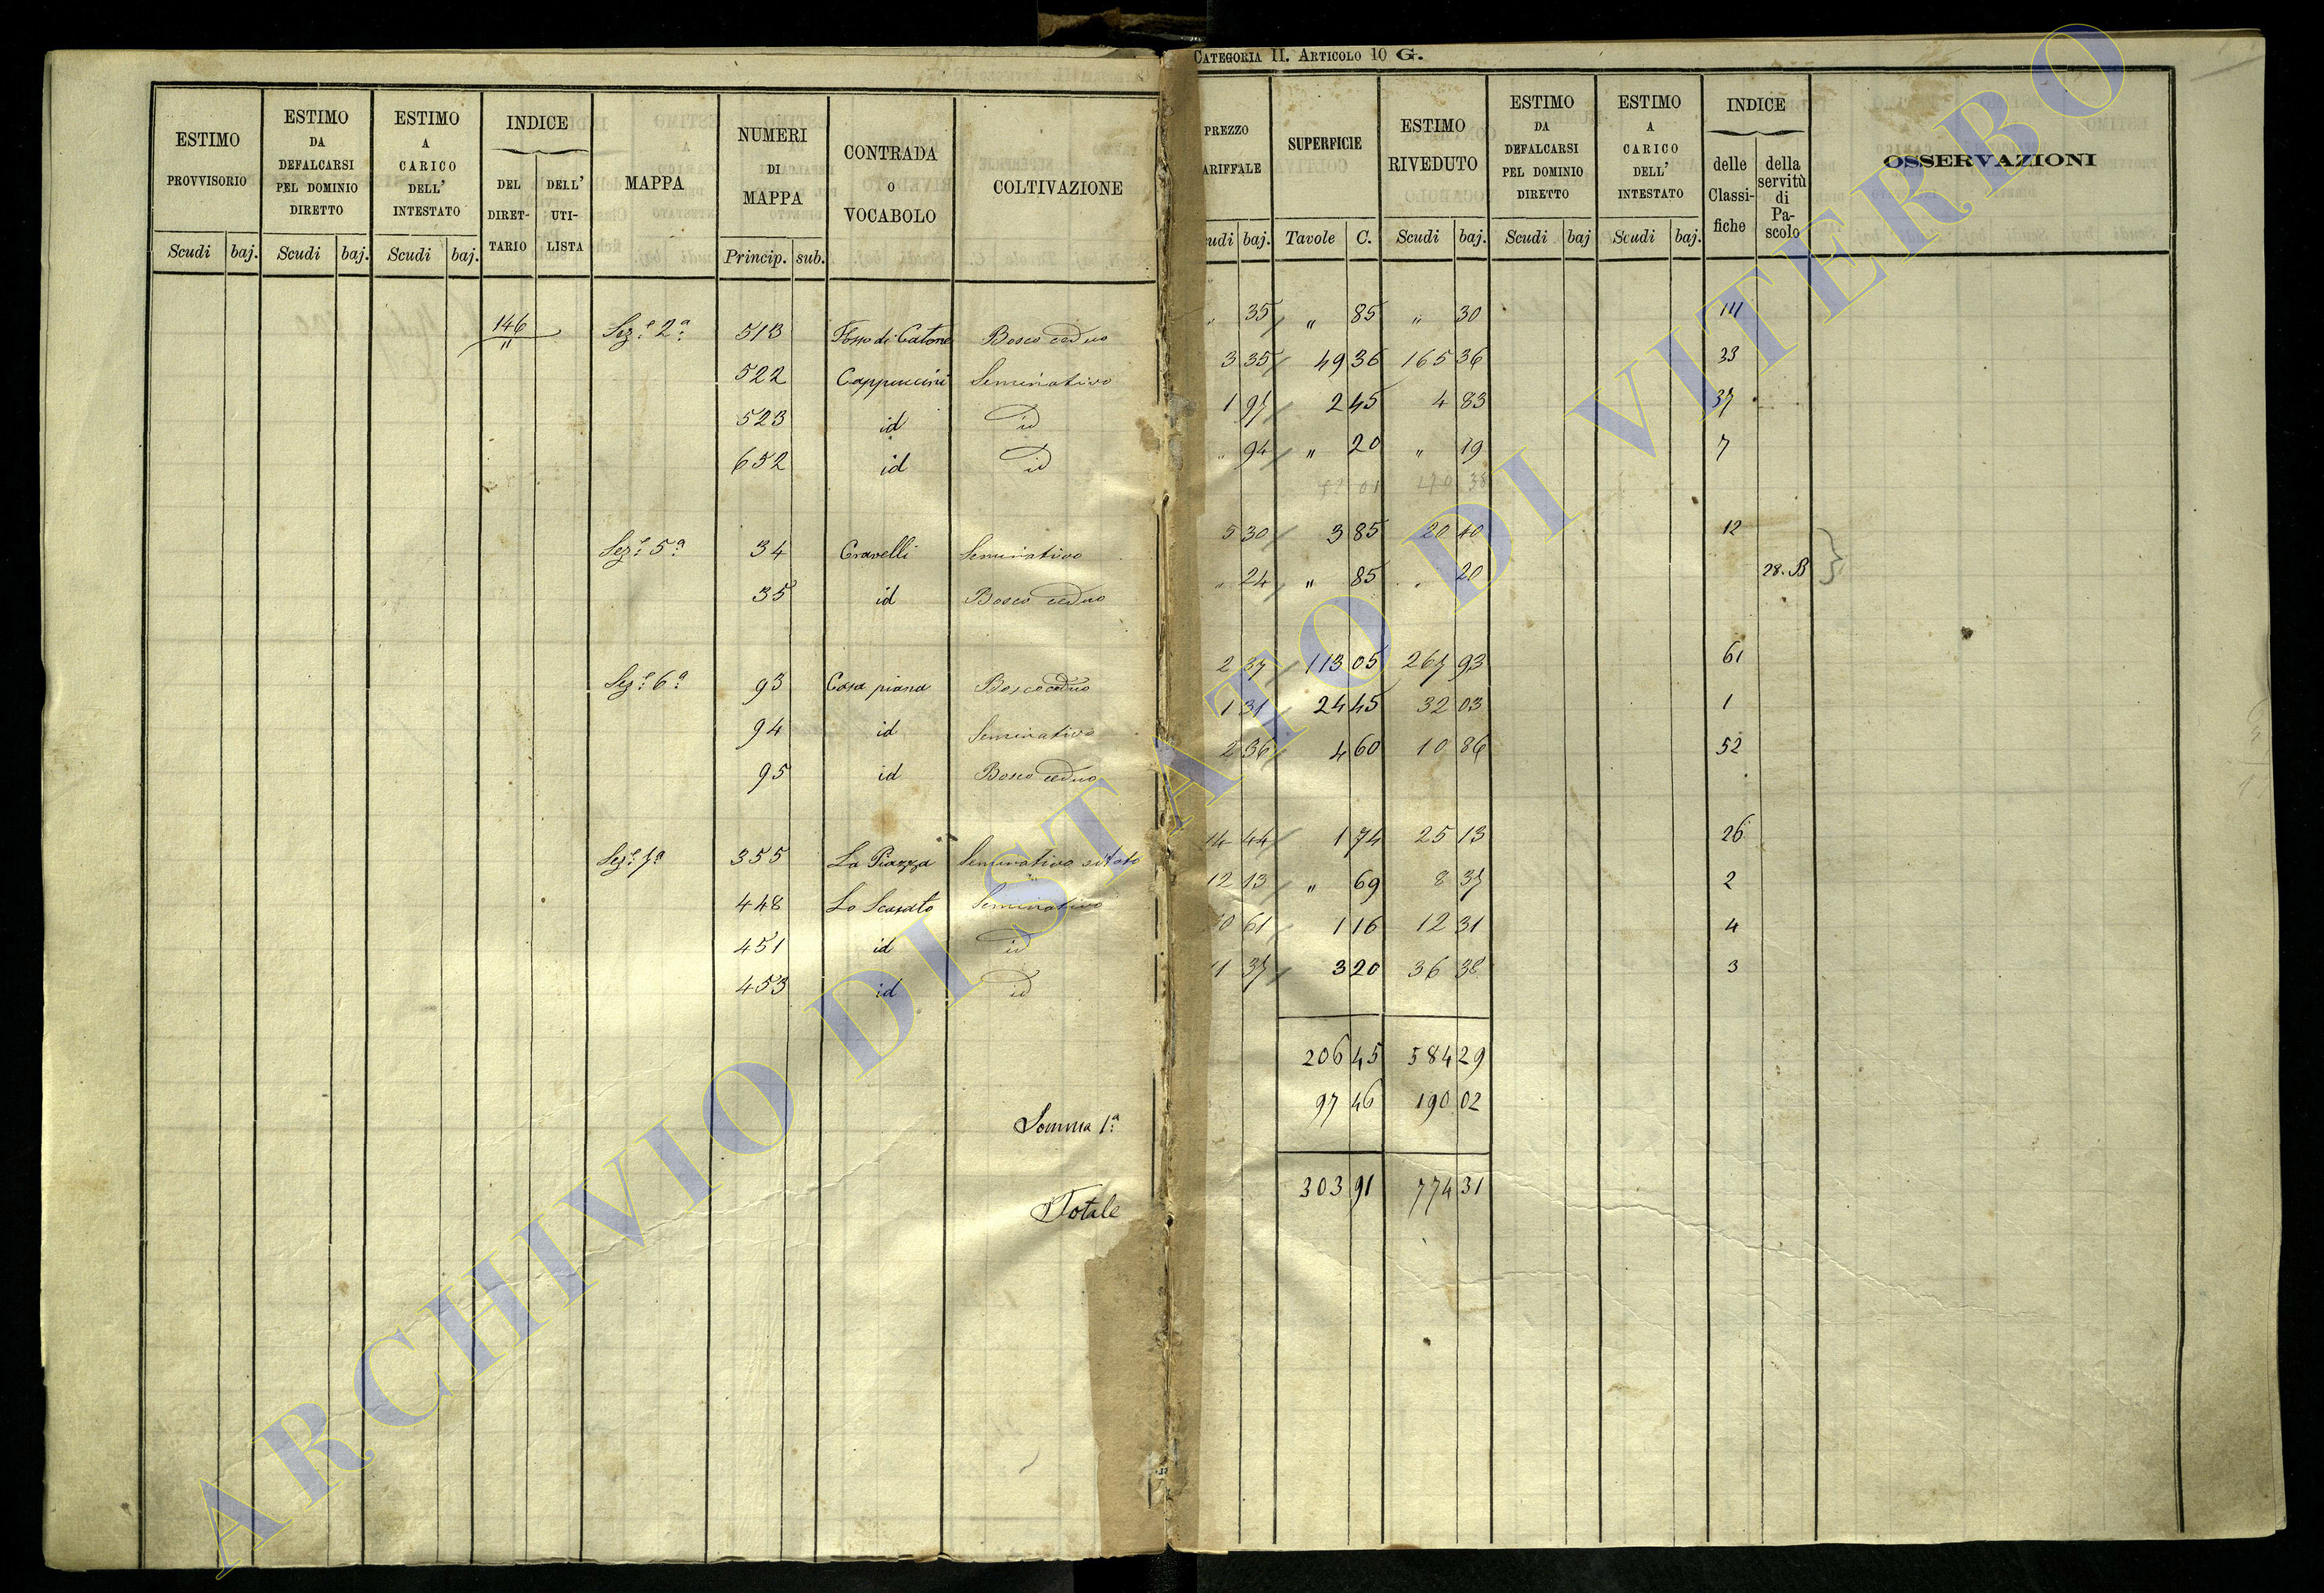 CATEGORIA II. ARTICOLO 10 G.
ESTIMO PROVVISORIO
ESTIMO DA DEFALCARSI PEL DOMINIO DIRETTO
ESTIMO A CARICO DELL' INTESTATO
INDICE
DEL DIRETTARIO
DELL' UTILISTA
MAPPA
NUMERI DI MAPPA
CONTRADA O VOCABOLO
COLTIVAZIONE
Scudi baj. Scudi baj. Scudi baj. Princip. sub.
146 Sez.e 2a 513 Fosso di Catone Bosco ceduo
"
522 Cappuccini Seminativo
523 id id
652 id id
Sez.e 5a 34 Cravelli Seminativo
35 id Bosco ceduo
Sez.e 6a 93 Casa piana Bosco ceduo
94 id Seminativo
95 id Bosco ceduo
Sez.e 7a 355 La Piazza Seminativo
448 Lo Scasato Seminativo
451 id id
453 id id
Somma 1a
Totale
PREZZO ARIFFALE
SUPERFICIE
ESTIMO RIVEDUTO
ESTIMO DA DEFALCARSI PEL DOMINIO DIRETTO
ESTIMO A CARICO DELL' INTESTATO
INDICE
delle Classifiche
della servitù di Pascolo
OSSERVAZIONI
udi baj. Tavole C. Scudi baj. Scudi baj Scudi baj.
" 35 " 85 " 30 111
3 35 49 36 165 36 33
1 97 2 45 4 83 37
" 94 " 20 " 19 7
52 01 170 38
5 30 3 85 20 40 12
" 24 " 85 " 20 28. B
2 37 113 05 267 93 61
1 31 24 45 32 03 1
2 36 4 60 10 86 52
14 44 1 74 25 13 26
12 13 " 69 8 37 2
10 61 1 16 12 31 4
11 37 3 20 36 38 3
206 45 584 29
97 46 190 02
303 91 774 31
ARCHIVIO DI STATO DI VITERBO